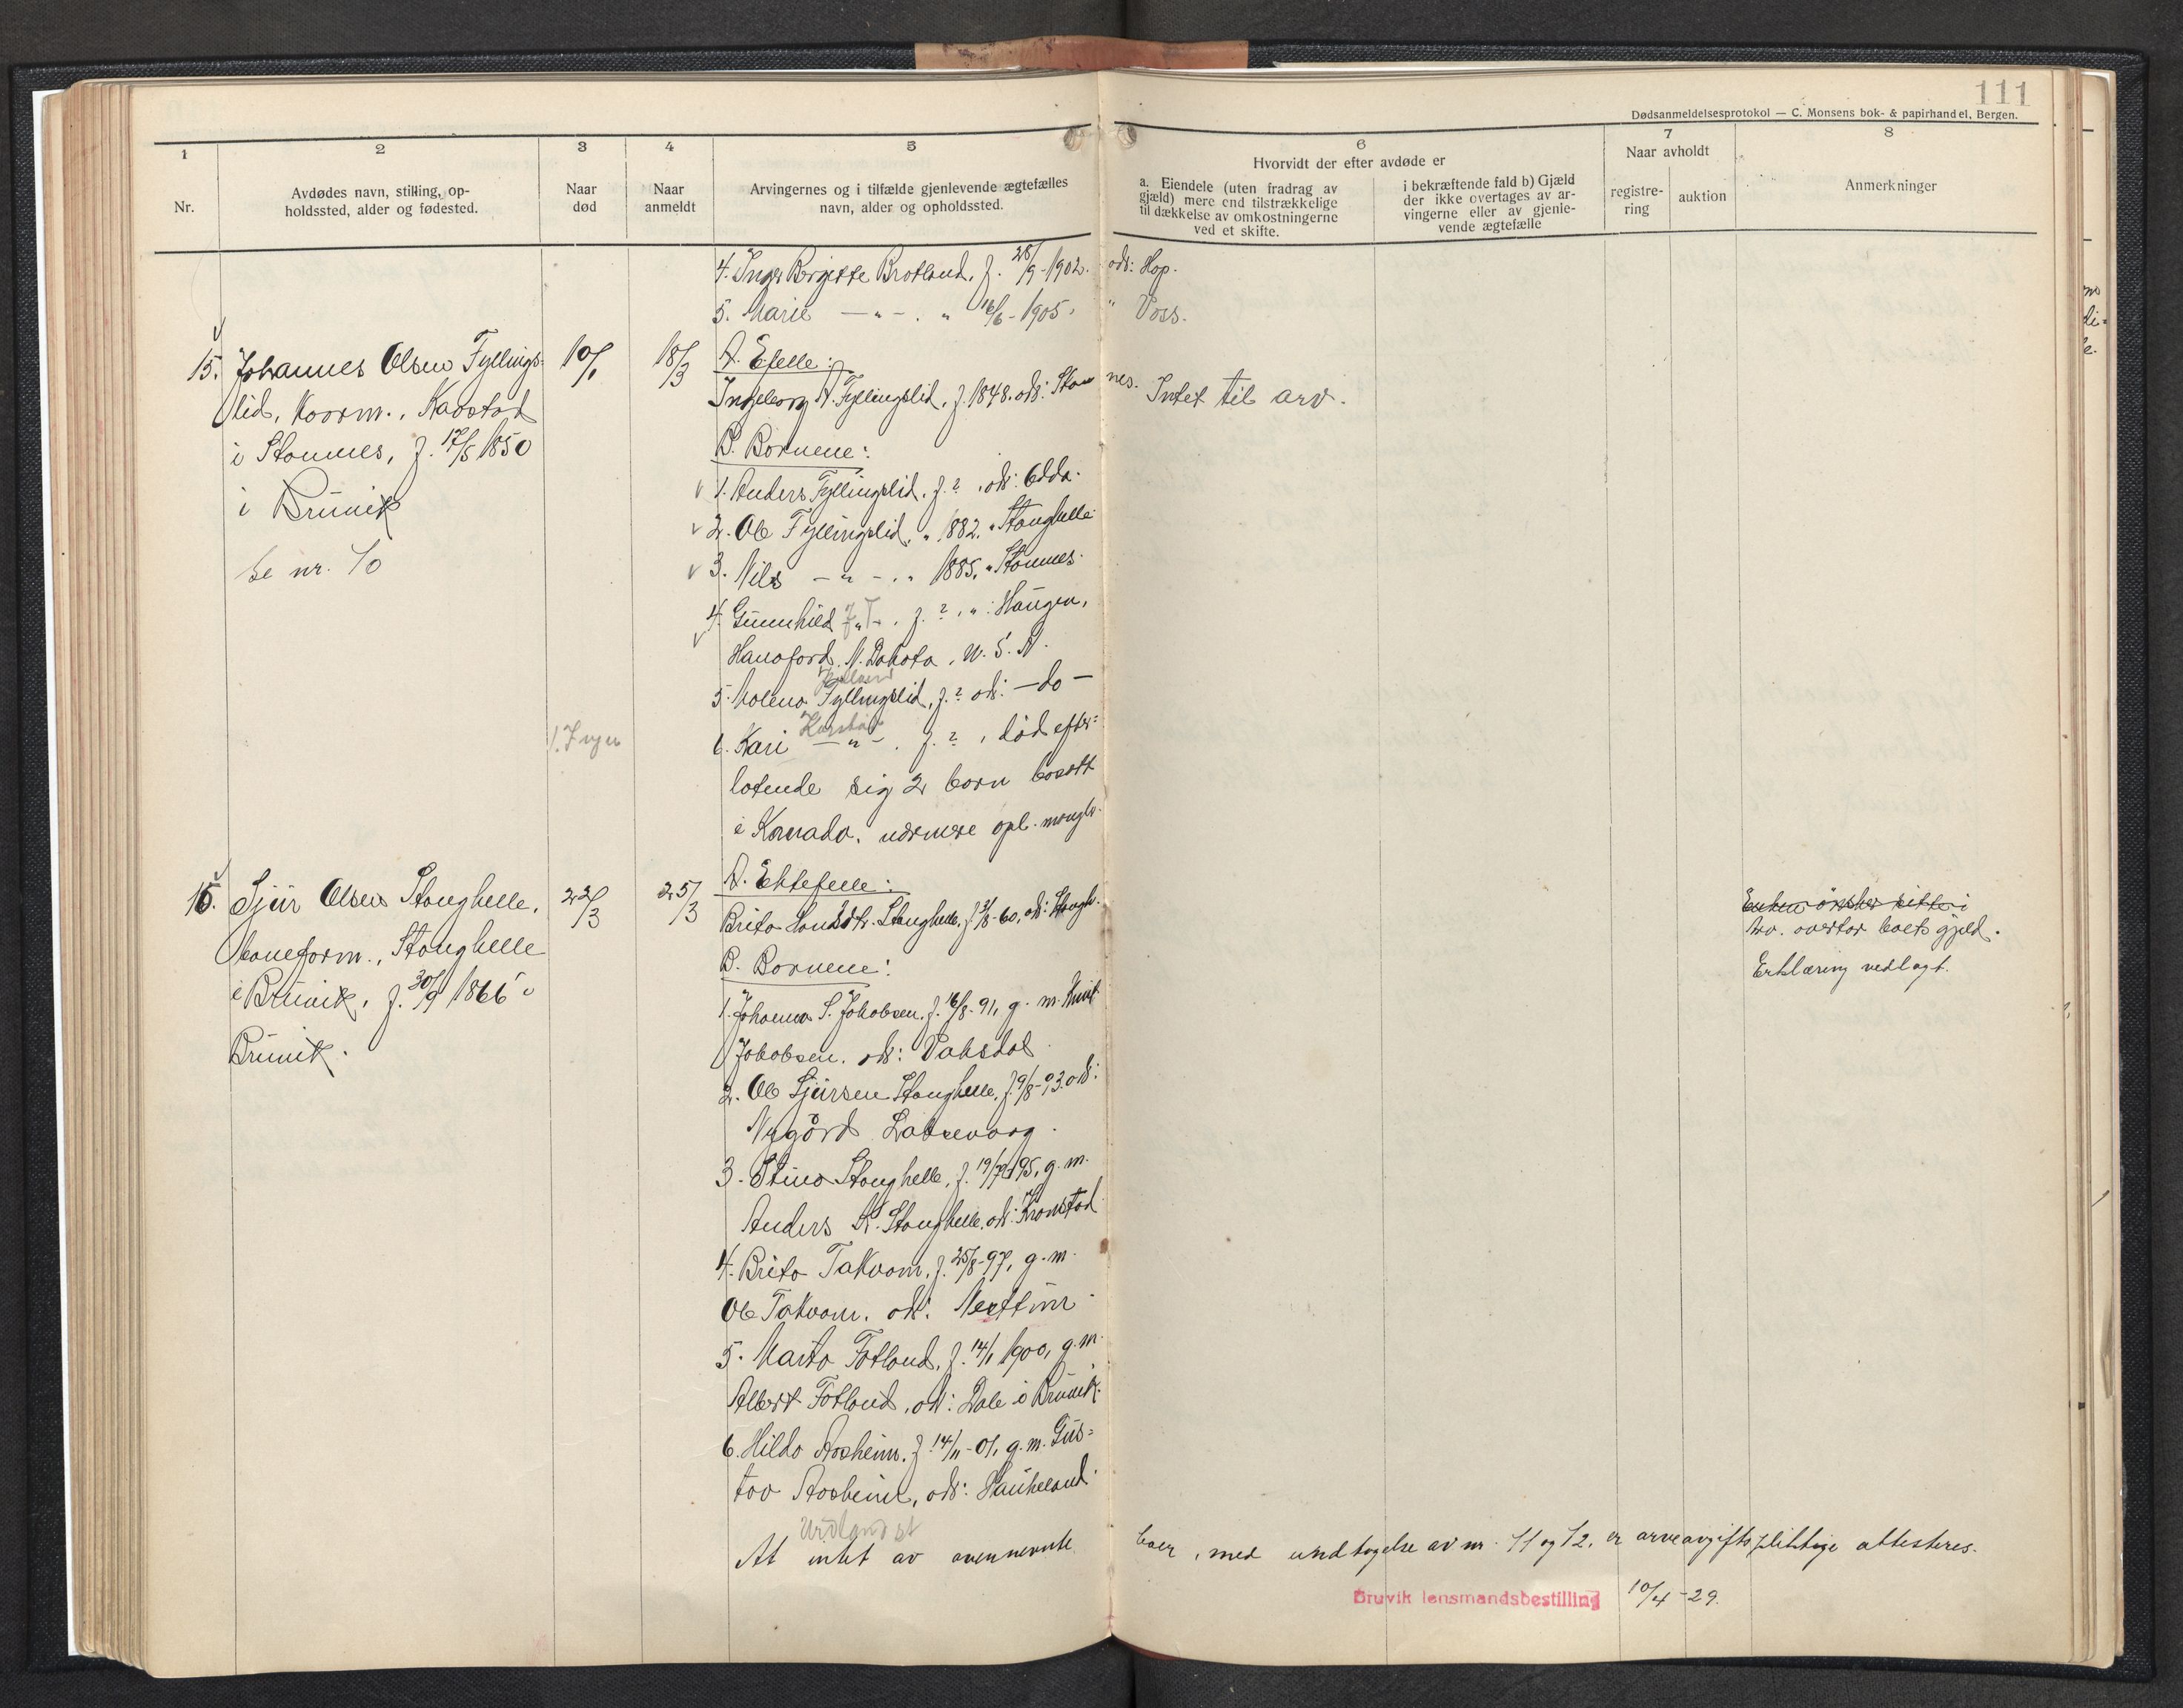 111
Dødsanmeldelsesprotokol — C. Monsens bok- & papirhandel, Bergen.
1
2
3
4
5
6
7
8
Nr.
Avdødes navn, stilling, op-
holdssted, alder og fødested.
Naar
død
Naar
anmeldt
Arvingernes og i tilfælde gjenlevende ægtefælles
navn, alder og opholdssted.
Hvorvidt der efter avdøde er
a. Eiendele (uten fradrag av
gjæld) mere end tilstrækkelige
til dækkelse av omkostningerne
ved et skifte.
i bekræftende fald b) Gjæld
der ikke overtages av ar-
vingerne eller av gjenle-
vende ægtefælle
Naar avholdt
registre-
ring
auktion
Anmerkninger
4. Inger Bergitte Brotland, f. 28/9-1902. ods: Hop.
5. Marie — " — . " 16/6-1905. " Voss.
15. Johannes Olsen Fyllings-
lid, kaarm., Kaastad
i Stamnes, f. 17/5 1850
i Bruvik
Se nr. 70
10/1
18/3
A. Efelle:
Ingeborg A. Fyllingslid, f. 1848. ods: Stamnes.
Intet til arv.
B. Barnene:
1. Anders Fyllingslid, f. ? , ods: Odda.
2. Ole Fyllingslid, " 1882. " Stanghelle
3. Nils — " — . " 1885. " Stamnes.
4. Gunnhild — " — . f. ? , " : Haugen,
Hanaford, N. Dakota, U. S. A.
5. Malena Fyllingslid, f. ? ods: — do —
6. Kari — " — . f. ? , død efter-
latende sig 2 barn bosatt
i Kanada. nærmere opl. mangler.
1. Inger
16. Sjur Olsen Stanghelle,
baneform., Stanghelle
i Bruvik, f. 30/9 1866 i
Bruvik.
22/3
25/3
A. Ektefelle:
Brita Stanghelle, f. 3/8-60, ods: Stangh.
B. Barnene:
1. Johanna S. Jakobsen, f. 16/8-91, g. m. Knut
Jakobsen. ods: Vaksdal
2. Ole Sjursen Stanghelle, f. 9/8-93. ods:
Nygård Laksevaag.
3. Stina Stanghelle, f. 19/7 1895, g. m.
Anders K. Stanghelle, ods: Kronstad
4. Brita Takvam, f. 25/8-97, g. m.
Ole Takvam. ods: Nesttun
5. Marta Fotland, f. 14/1 1900, g. m.
Albert Fotland, ods: Dale i Bruvik.
6. Hilda Aasheim, f. 14/11-01, g. m. Gus-
tav Aasheim, ods: Haukeland.
Enken ønsker sitte i
bo. overtar boets gjeld.
Erklæring vedlagt.
At intet av ovennevnte boer, med undtagelse av nr. 11 og 12, er arveavgiftspliktige attesteres.
Bruvik lensmandsbestilling 10/4-29.